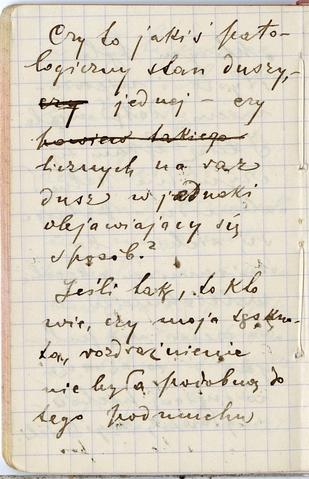 Czy to jakiś pato-
logiczny stan duszy, -
czy jednej - czy
powiew takiego
licznych na raz
dusz w jednaki
objawiający się
sposób?
Jeśli tak, to kto
wie, czy moja tęskno-
ta, rozdrażnienie
nie była podobną do
tego podmuchu